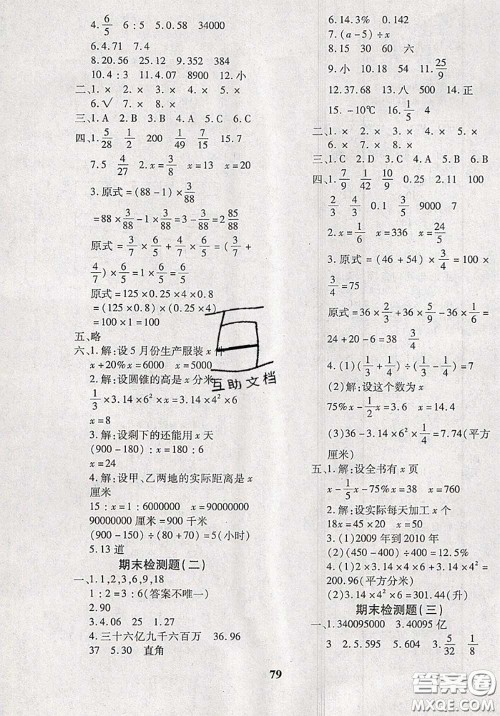 4. 6/5 6∶5 5.8 0.5 34000
8. 20.56 25.12 9. 252 84
10. 4∶3 11. 41.13 8900 12. 4
二、1. × 2. × 3. × 4. × 5. ×
6. √ 7. × 8. ×
三、1. A 2. B 3. A 4. B 5. B
四、1. 5/28 1/2 200 49/150 1/15 7
7.5 4/27 2. x=3/8 x=10 x=20
3. 原式=(88-1)×3/88
=88×3/88-1×3/88=3-3/88=2 85/88
原式=3/7×6/5+4/7×6/5=(3/7+
4/7)×6/5=1×6/5=6/5
原式=125×0.25×4×0.8
=(125×0.8)×(0.25×4)
=100×1=100
五、略
六、1. 解:设5月份生产服装x
2. 解:设圆锥的高是x分米
1/3×3.14×6²×x=
3. 解:设剩下的还能用x天
(900-180)÷x=
x=24
4. 解:设甲、乙两地的实际距离是x
厘米
15∶x=1∶6000000 x=90000000
90000000厘米=900千米
(900-150)÷(60+90)=5(小时)
5. 13道
期末检测题(二)
一、1. 1,2,3,6,9,18
1∶2=3∶6(答案不唯一)
2. 90
4. 三十六亿九千六百万 36.96
37 5. 30 直角
6. 14.3% 0.142
7. (a-5)÷x
8. 15 30 60 六
9. 小 10. 18 24 11. 25/9
12. 37.68 13. 八 500 14. 正
15. -10℃ 16. 80
二、1. × 2. × 3. × 4. × 5. ×
6. × 7. × 8. ×
三、1. C 2. D 3. A 4. B 5. B 6. B
四、1. 7/9 1/42 9/10 0.81 9000 7
2. x=1/2 x=336 x=24/5
3. 原式=(46+54)×3/4=100×
3/4=75
原式=36×
4. (1)(1/3+1/4)÷(1/3-1/4)=7
(2)解:设这个数为x
75%x-
(3)(6÷2)²×3.14×1/4=7.74(平方
厘米)
五、1. 解:设全书有x页
x-1/5x-75%x=38 x=760
2. 解:设实际每天加工x个
18x=45×20 x=50
3. (1)2009年到2010年
(2)(450-400)÷400=12.5%
4. (1)3.14×4²+2×3.14×4×6=
200.96(平方厘米)
(2)3.14×4²×6=301.44(升)
期末检测题(三)
一、1. 340095000 3.40095亿
3 2. 5.595 5.604 3. 5/32 1/8
79
互助文档
答案圈
MXQE.COM